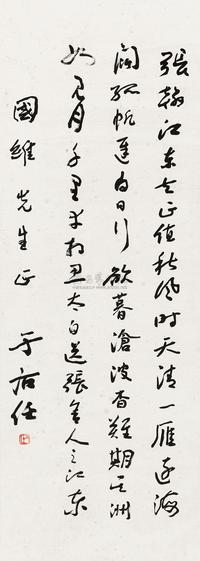 張翰江東去正值秋風時天清一雁遠海
闊孤帆遲白日行欲暮滄波杳難期吳洲
如見月千里幸相思太白送張舍人之江東
國維先生正
于右任